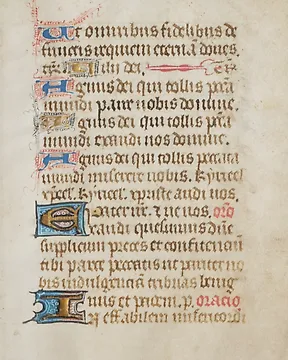 Et omnibus fidelibus de
functis requiem eternā dones.
fili dei.
Agnus dei qui tollis pcc̄a
mundi parce nobis domine.
Agnus dei qui tollis pcc̄a
mundi exaudi nos domine.
Agnus dei qui tollis peccata
mundi miserere nobis. Kyrieel
xp̄eel. Kyrieel. xp̄riste audi nos.
Pater nr̄. & ne nos. oro
Exaudi quesumus dn̄e
supplicum preces et confitentiū
tibi parce peccatis ut pariter no
bis indulgentiā tribuas benig
nus et pacem. p. oracio
Ineffabilem misericordi